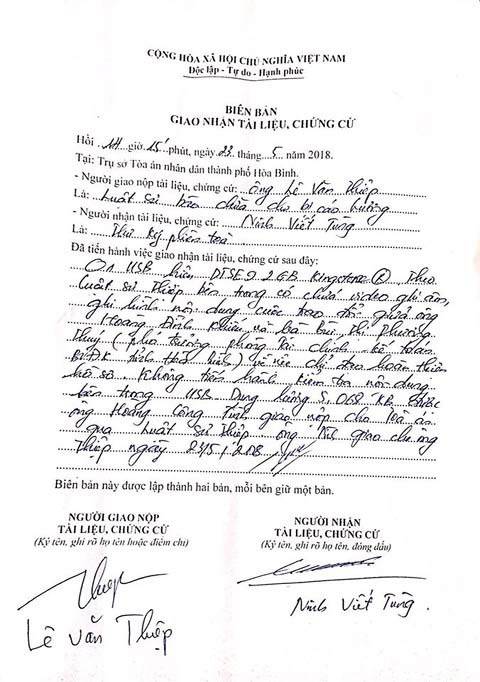 CỘNG HÒA XÃ HỘI CHỦ NGHĨA VIỆT NAM
Độc lập - Tự do - Hạnh phúc
BIÊN BẢN
GIAO NHẬN TÀI LIỆU, CHỨNG CỨ
Hồi 14 giờ 15 phút, ngày 23 tháng 5 năm 2018.
Tại: Trụ sở Tòa án nhân dân thành phố Hòa Bình.
- Người giao nộp tài liệu, chứng cứ: ông Lê Văn Thiệp
Là: Luật sư bào chữa cho bị cáo Lương
- Người nhận tài liệu, chứng cứ: Ninh Viết Tùng
Là: Thư ký phiên toà
Đã tiến hành việc giao nhận tài liệu, chứng cứ sau đây:
01 USB hiệu DTSE9 2GB Kingston ® Theo
luật sư Thiệp bên trong có chứa video ghi âm,
ghi hình nội dung cuộc trao đổi giữa ông
Hoàng Đình Khiếu và bà Bùi Thị Phương
Thúy (phó trưởng phòng tài chính kế toán
BVĐK tỉnh Hoà Bình) về việc chỉ đạo hoàn thiện
hồ sơ. Không tiến hành kiểm tra nội dung
bên trong USB. Dung lượng 5.068 KB được
ông Hoàng Công Tình giao nộp cho Toà án
qua luật sư Thiệp ông Tình giao cho ông
Thiệp ngày
Biên bản này được lập thành hai bản, mỗi bên giữ một bản.
NGƯỜI GIAO NỘP
TÀI LIỆU, CHỨNG CỨ
(Ký tên, ghi rõ họ tên hoặc điểm chỉ)
NGƯỜI NHẬN
TÀI LIỆU, CHỨNG CỨ
(Ký tên, ghi rõ họ tên, đóng dấu)
Thiệp
Lê Văn Thiệp
Ninh Viết Tùng.